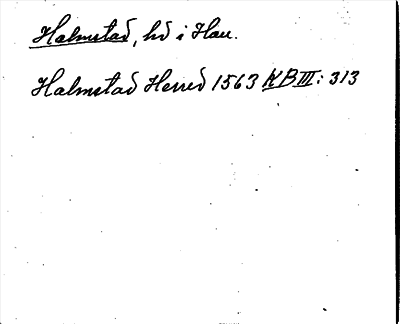 Halmstad, hd i Hall.
Halmstad Herred 1563 KB III: 313